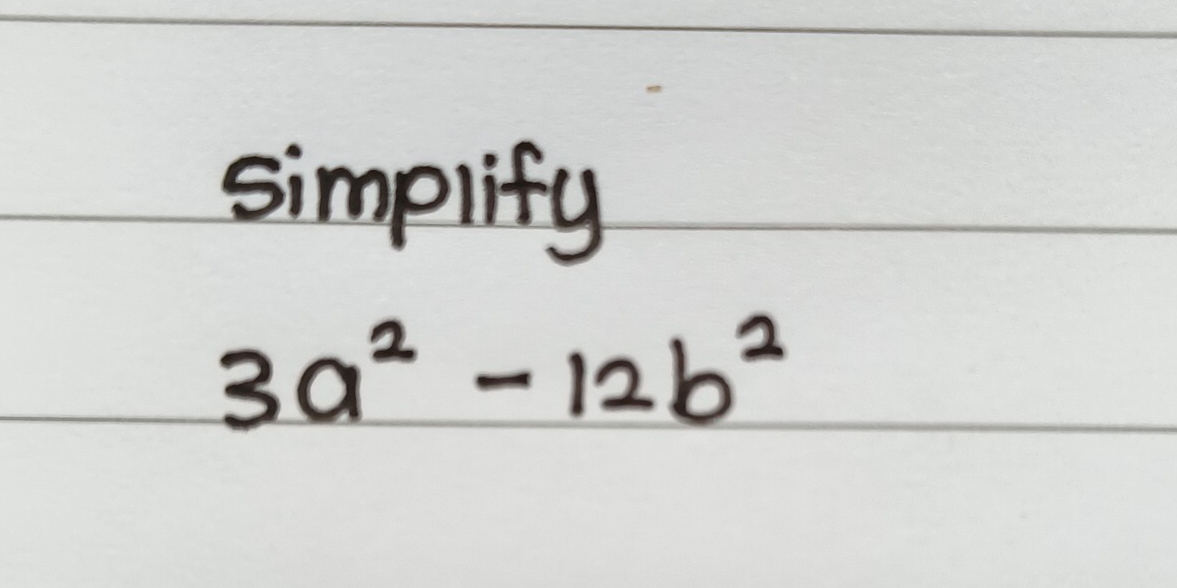 Simplify
3a² - 12b²